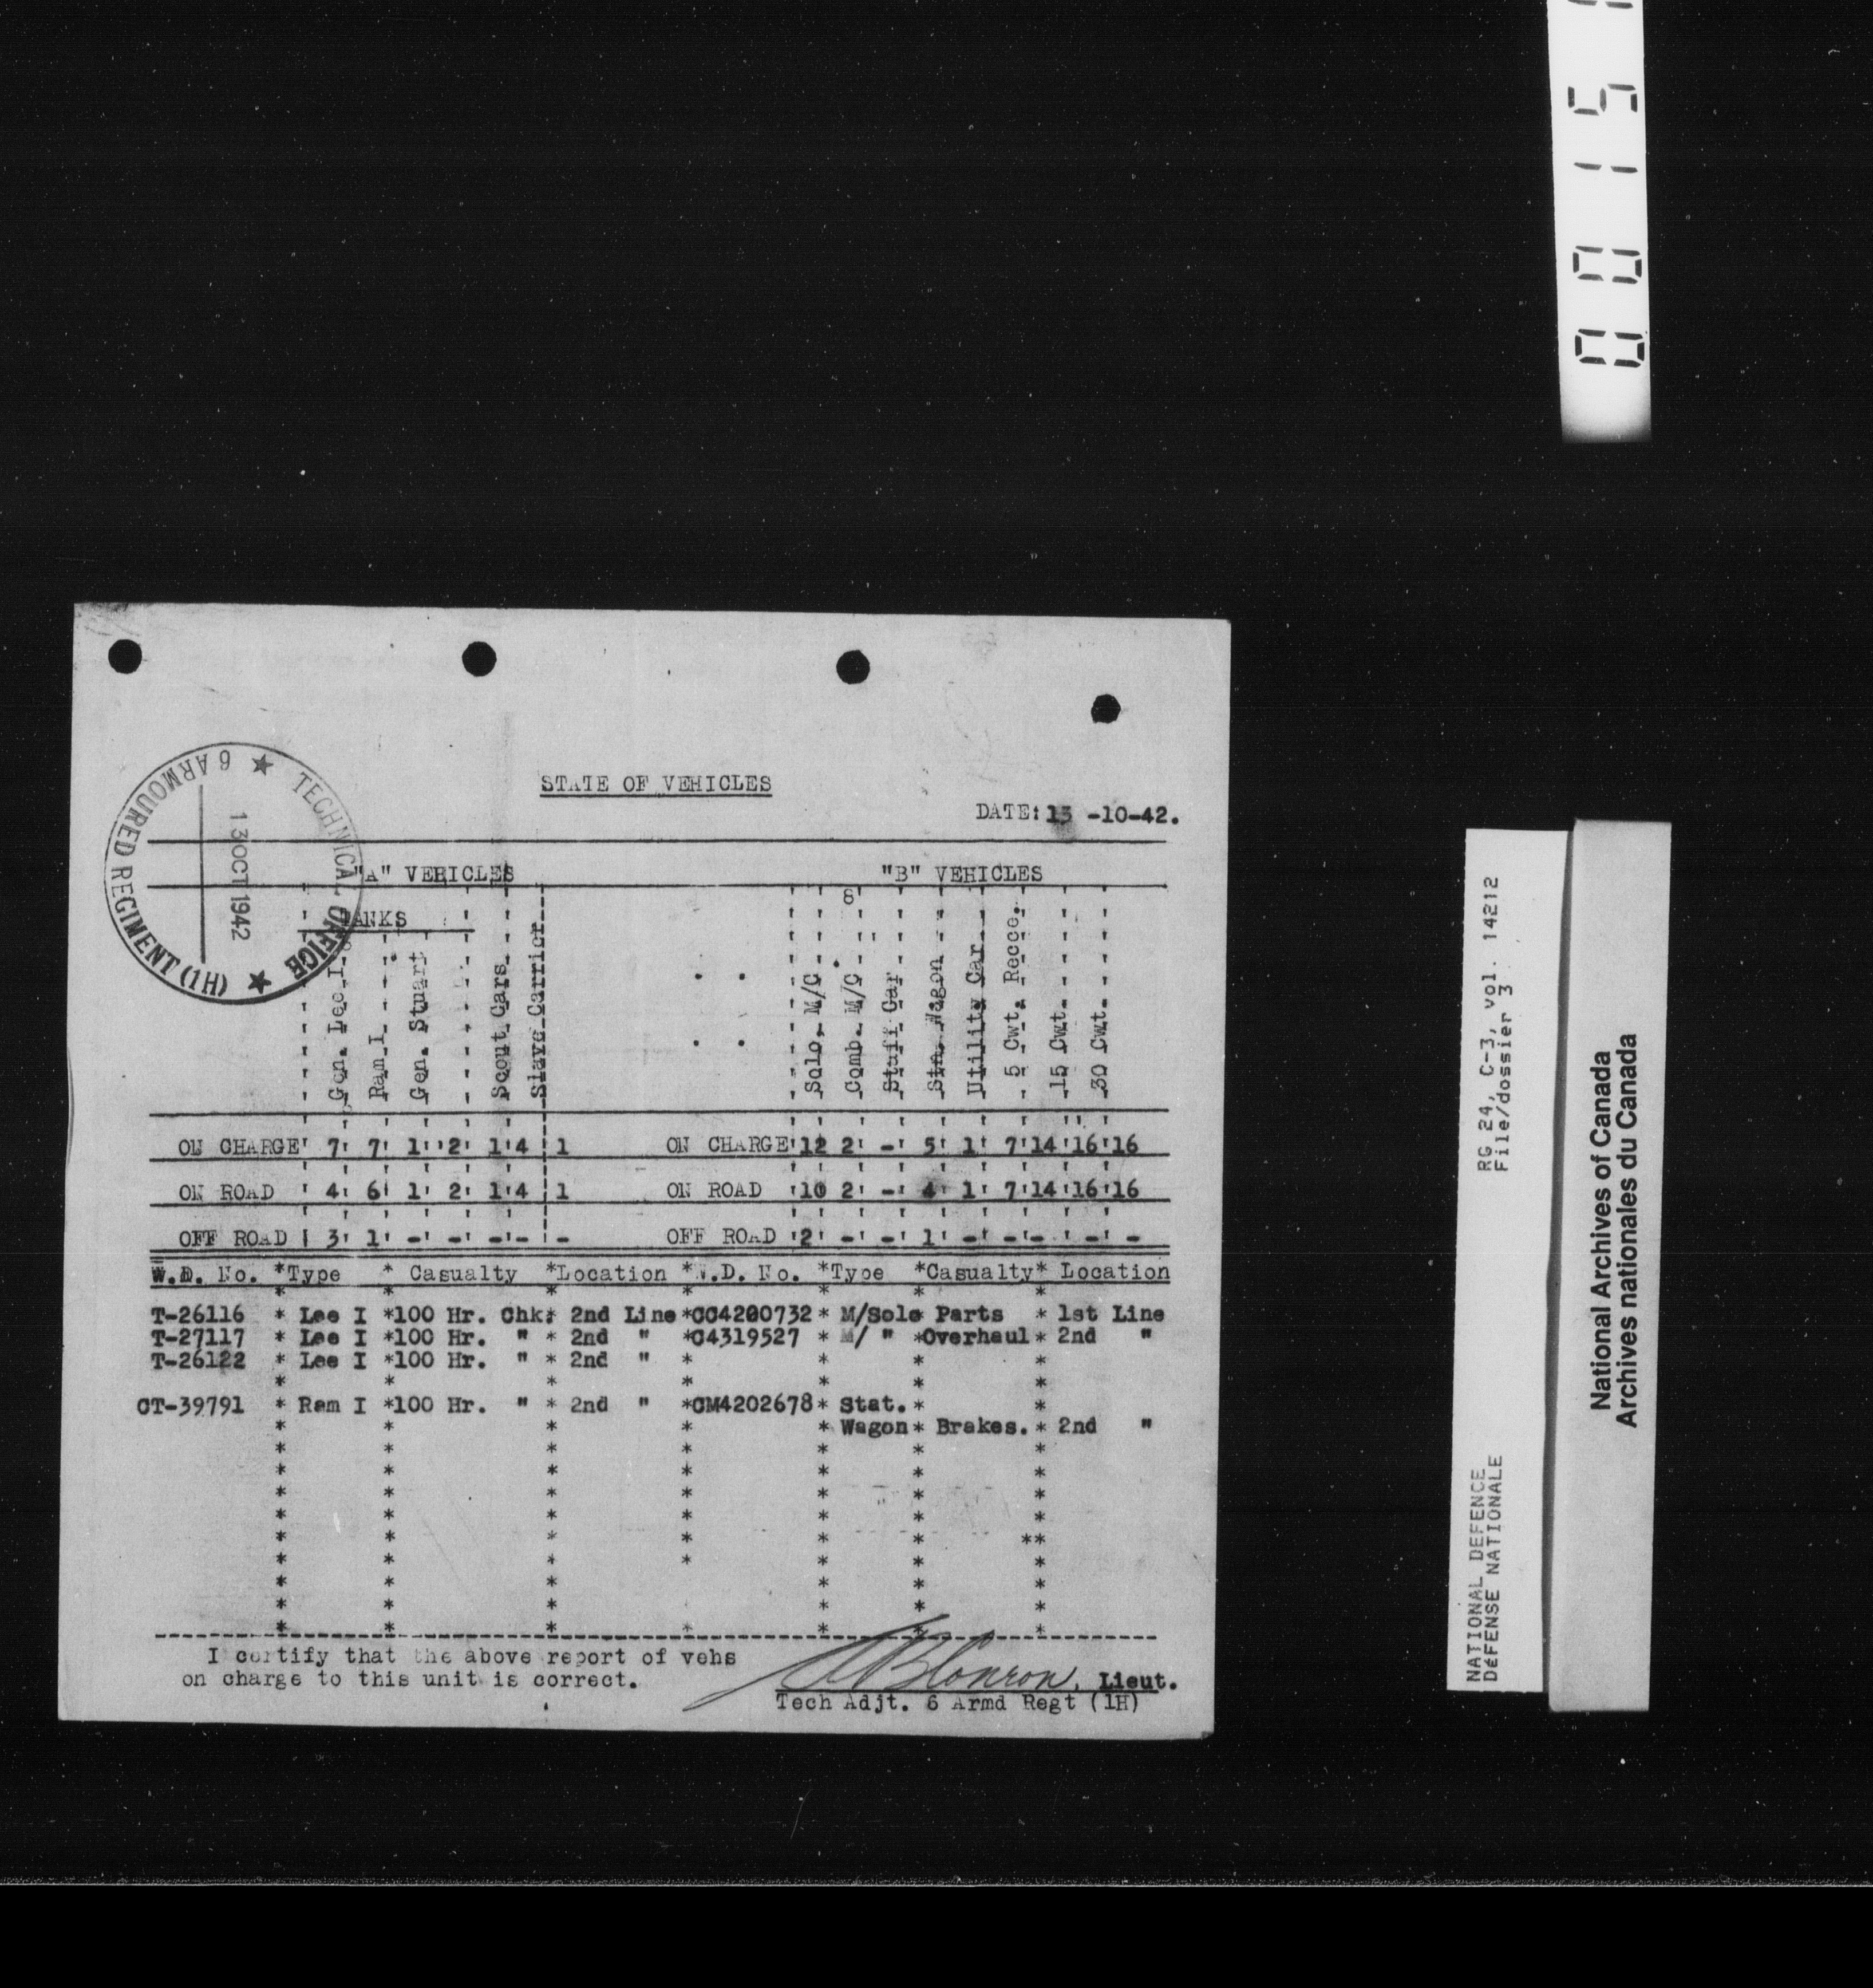 0015
STATE OF VEHICLES
DATE: 13 -10-42.
6 ARMOURED REGIMENT (1H) ★ TECHNICAL OFFICE ★
13 OCT 1942
"A" VEHICLES "B" VEHICLES
TANKS
Gen. Lee I
Ram I
Gen. Stuart
Scout Cars
Slave Carrier
8
Solo, M/C
Comb. M/C
Staff Car
Stn. Wagon
Utility Car
5 Cwt. Recce.
15 Cwt.
30 Cwt.
ON CHARGE 7 7 1 2 1 4 1 ON CHARGE 12 2 - 5 1 7 14 16 16
ON ROAD 4 6 1 2 1 4 1 ON ROAD 10 2 - 4 1 7 14 16 16
OFF ROAD 3 1 - - - - - OFF ROAD 2 - - 1 - - - - -
W.D. No. *Type * Casualty *Location *W.D. No. *Type *Casualty* Location
T-26116 * Lee I *100 Hr. Chk* 2nd Line *CC4200732 * M/Solo Parts * 1st Line
T-27117 * Lee I *100 Hr. " * 2nd " *C4319527 * M/ " *Overhaul * 2nd "
T-26122 * Lee I *100 Hr. " * 2nd " * * * *
CT-39791 * Ram I *100 Hr. " * 2nd " *CM4202678 * Stat. * *
* * * * * Wagon * Brakes. * 2nd "
I certify that the above report of vehs
on charge to this unit is correct.
Lieut.
Tech Adjt. 6 Armd Regt (1H)
NATIONAL DEFENCE RG 24, C-3, vol. 14212
DÉFENSE NATIONALE File/dossier 3
National Archives of Canada
Archives nationales du Canada